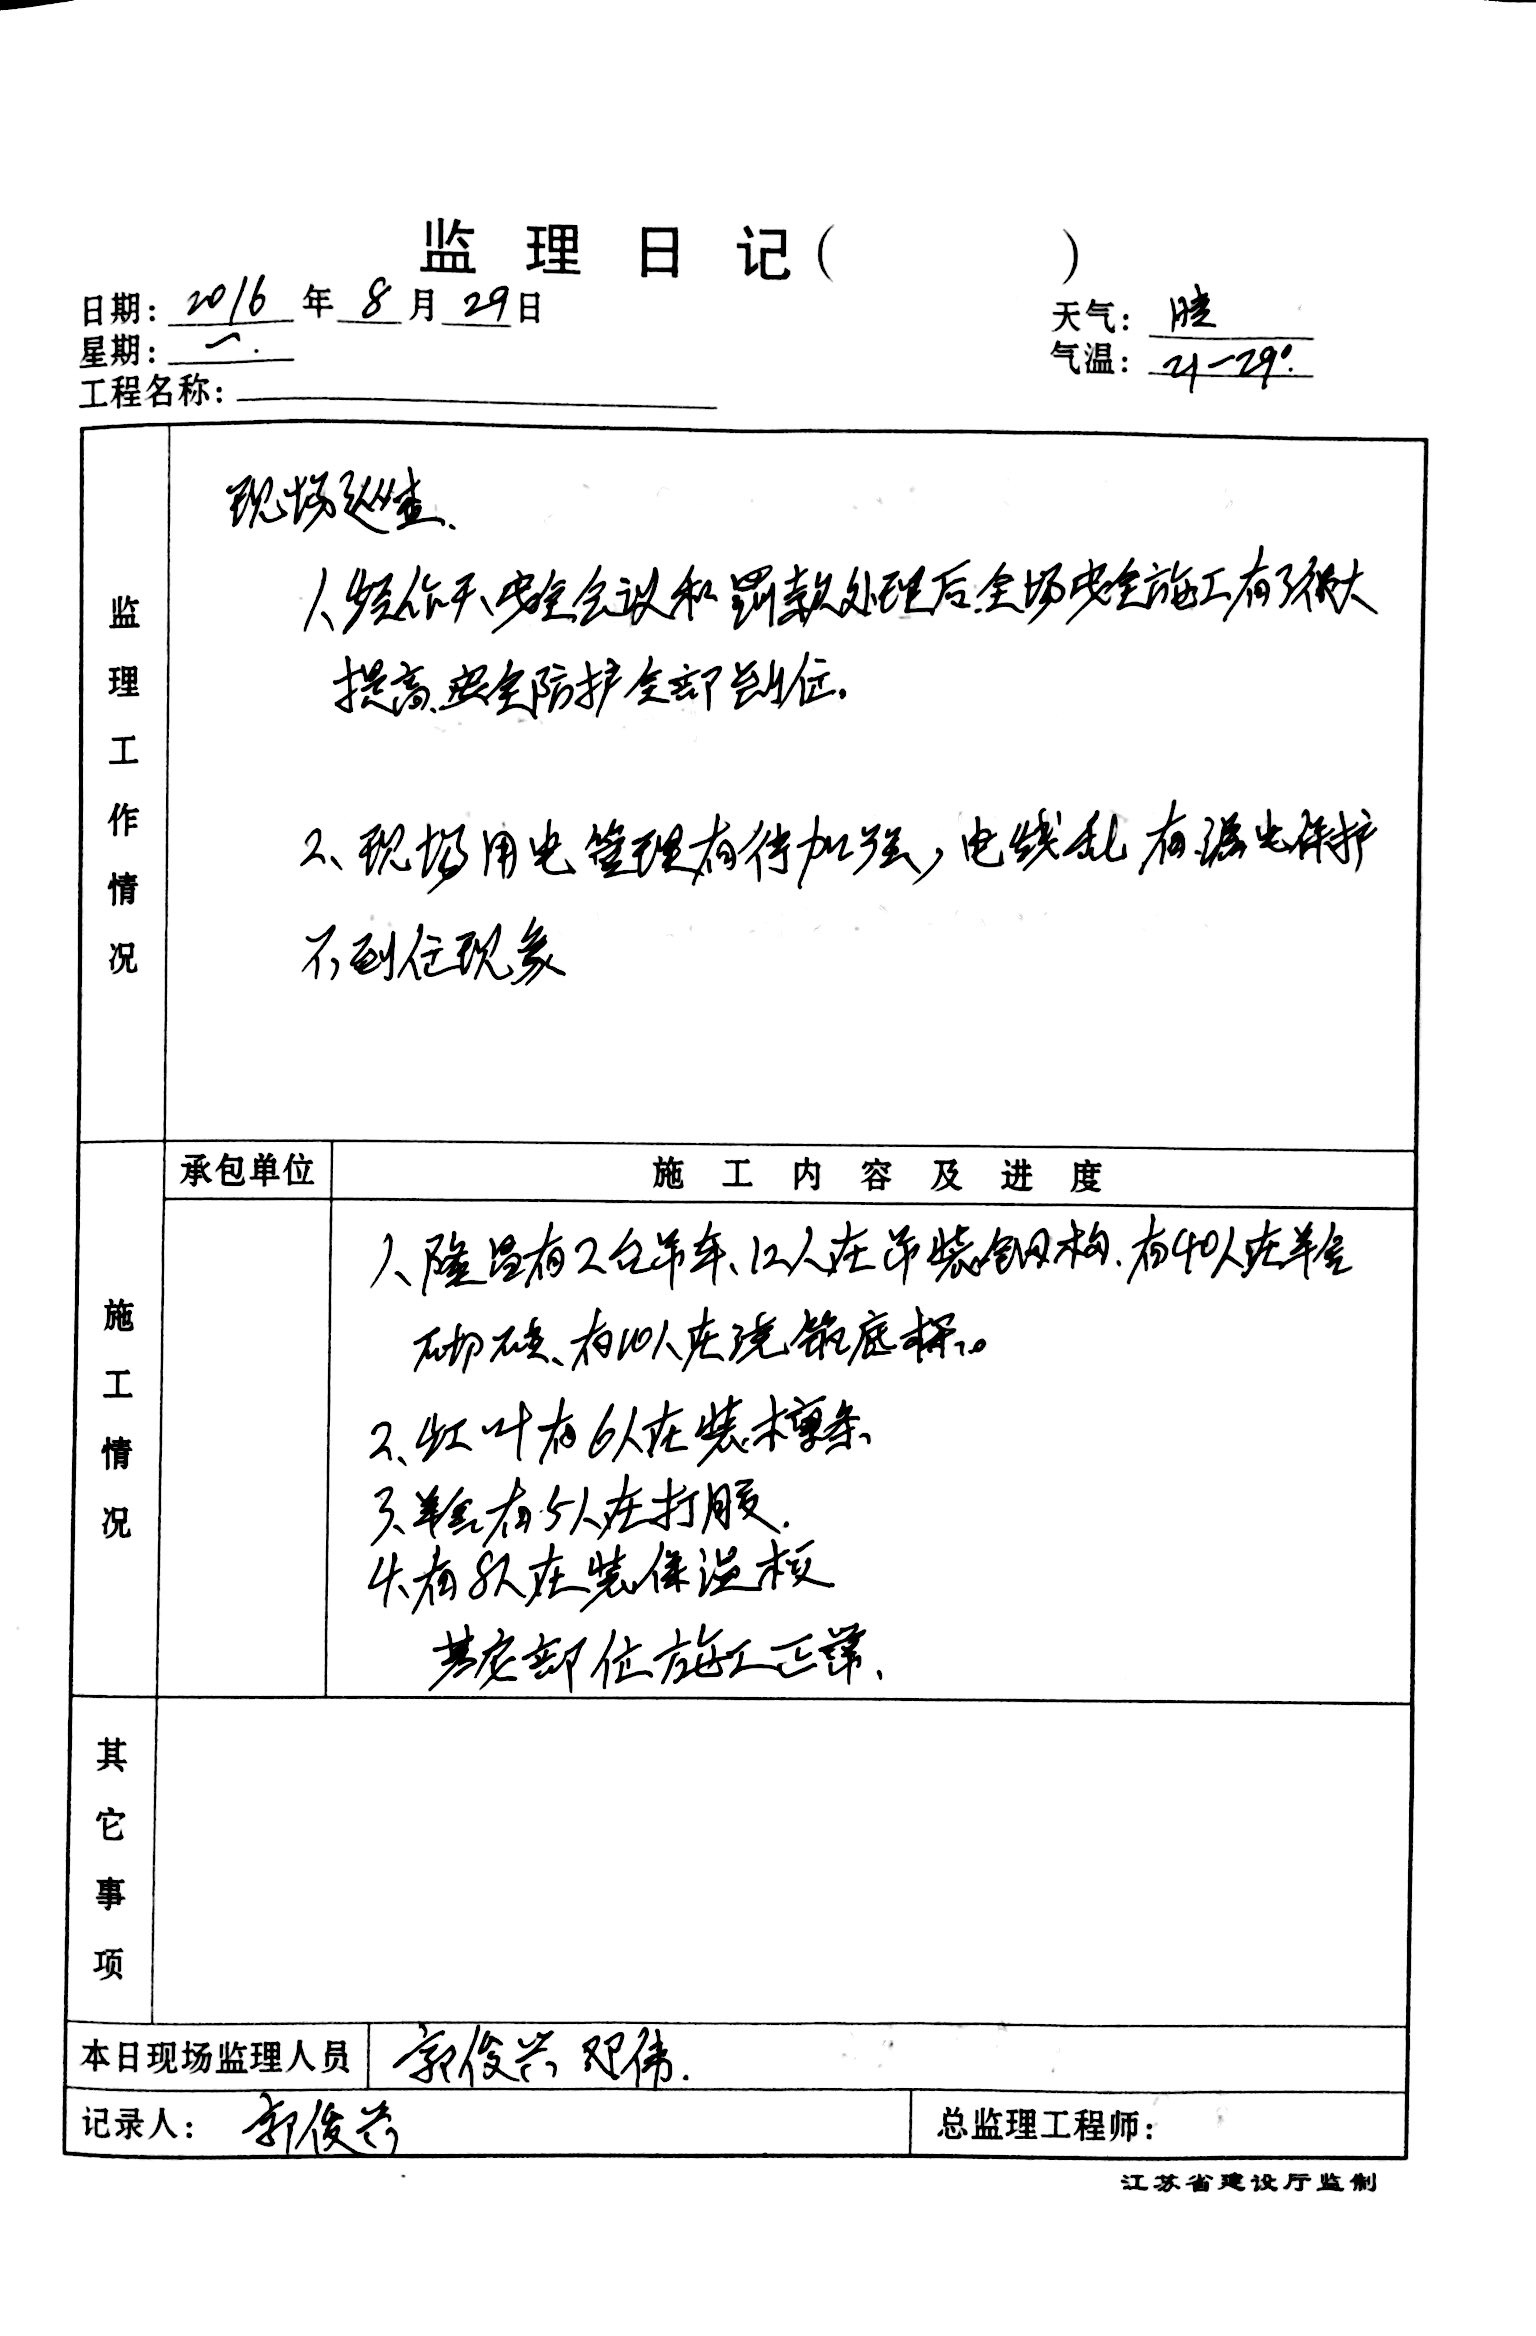 监理日记（ ）
日期：2016年8月29日
天气：晴
星期：一.
气温：21-29°.
工程名称：
监理工作情况
现场巡查、
1、经昨天安全会议和罚款处理后、全场安全施工有了很大
提高、安全防护全部到位。
2、现场用电管理有待加强，电线乱 有漏电保护
不到位现象
施工情况
承包单位
施工内容及进度
1、隆昌有2台吊车、12人在吊装钢构、有40人在羊舍
砌砖、有10人在浇筑底梁。
2、虹叶有6人在装檩条、
3、羊舍有5人在打胶.
4、有8人在装保温板
其它部位施工正常、
其它事项
本日现场监理人员 郭俊兴 邓伟.
记录人：郭俊兴
总监理工程师：
江苏省建设厅监制